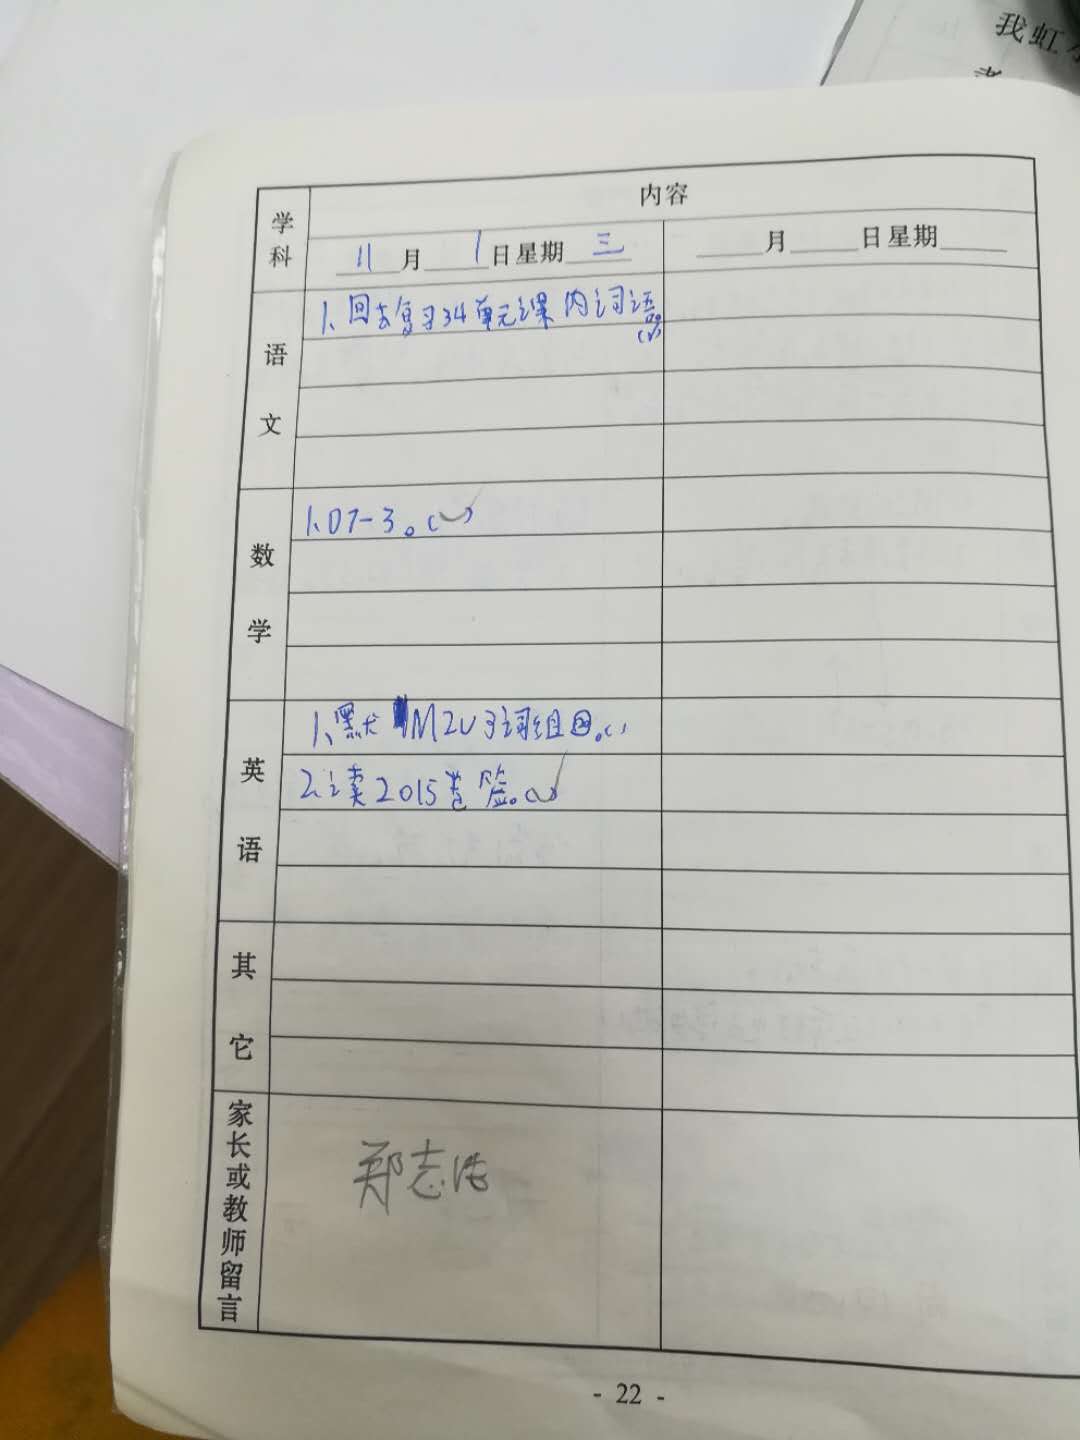 我虹
学科
内容
11月1日星期三
月 日星期
语文
1、回去复习34单元课内词语。
( )
数学
1、07-3。( )
英语
1、默M2U3词组
2、读2015卷签。( )
其它
家长或教师留言
郑志浩
- 22 -